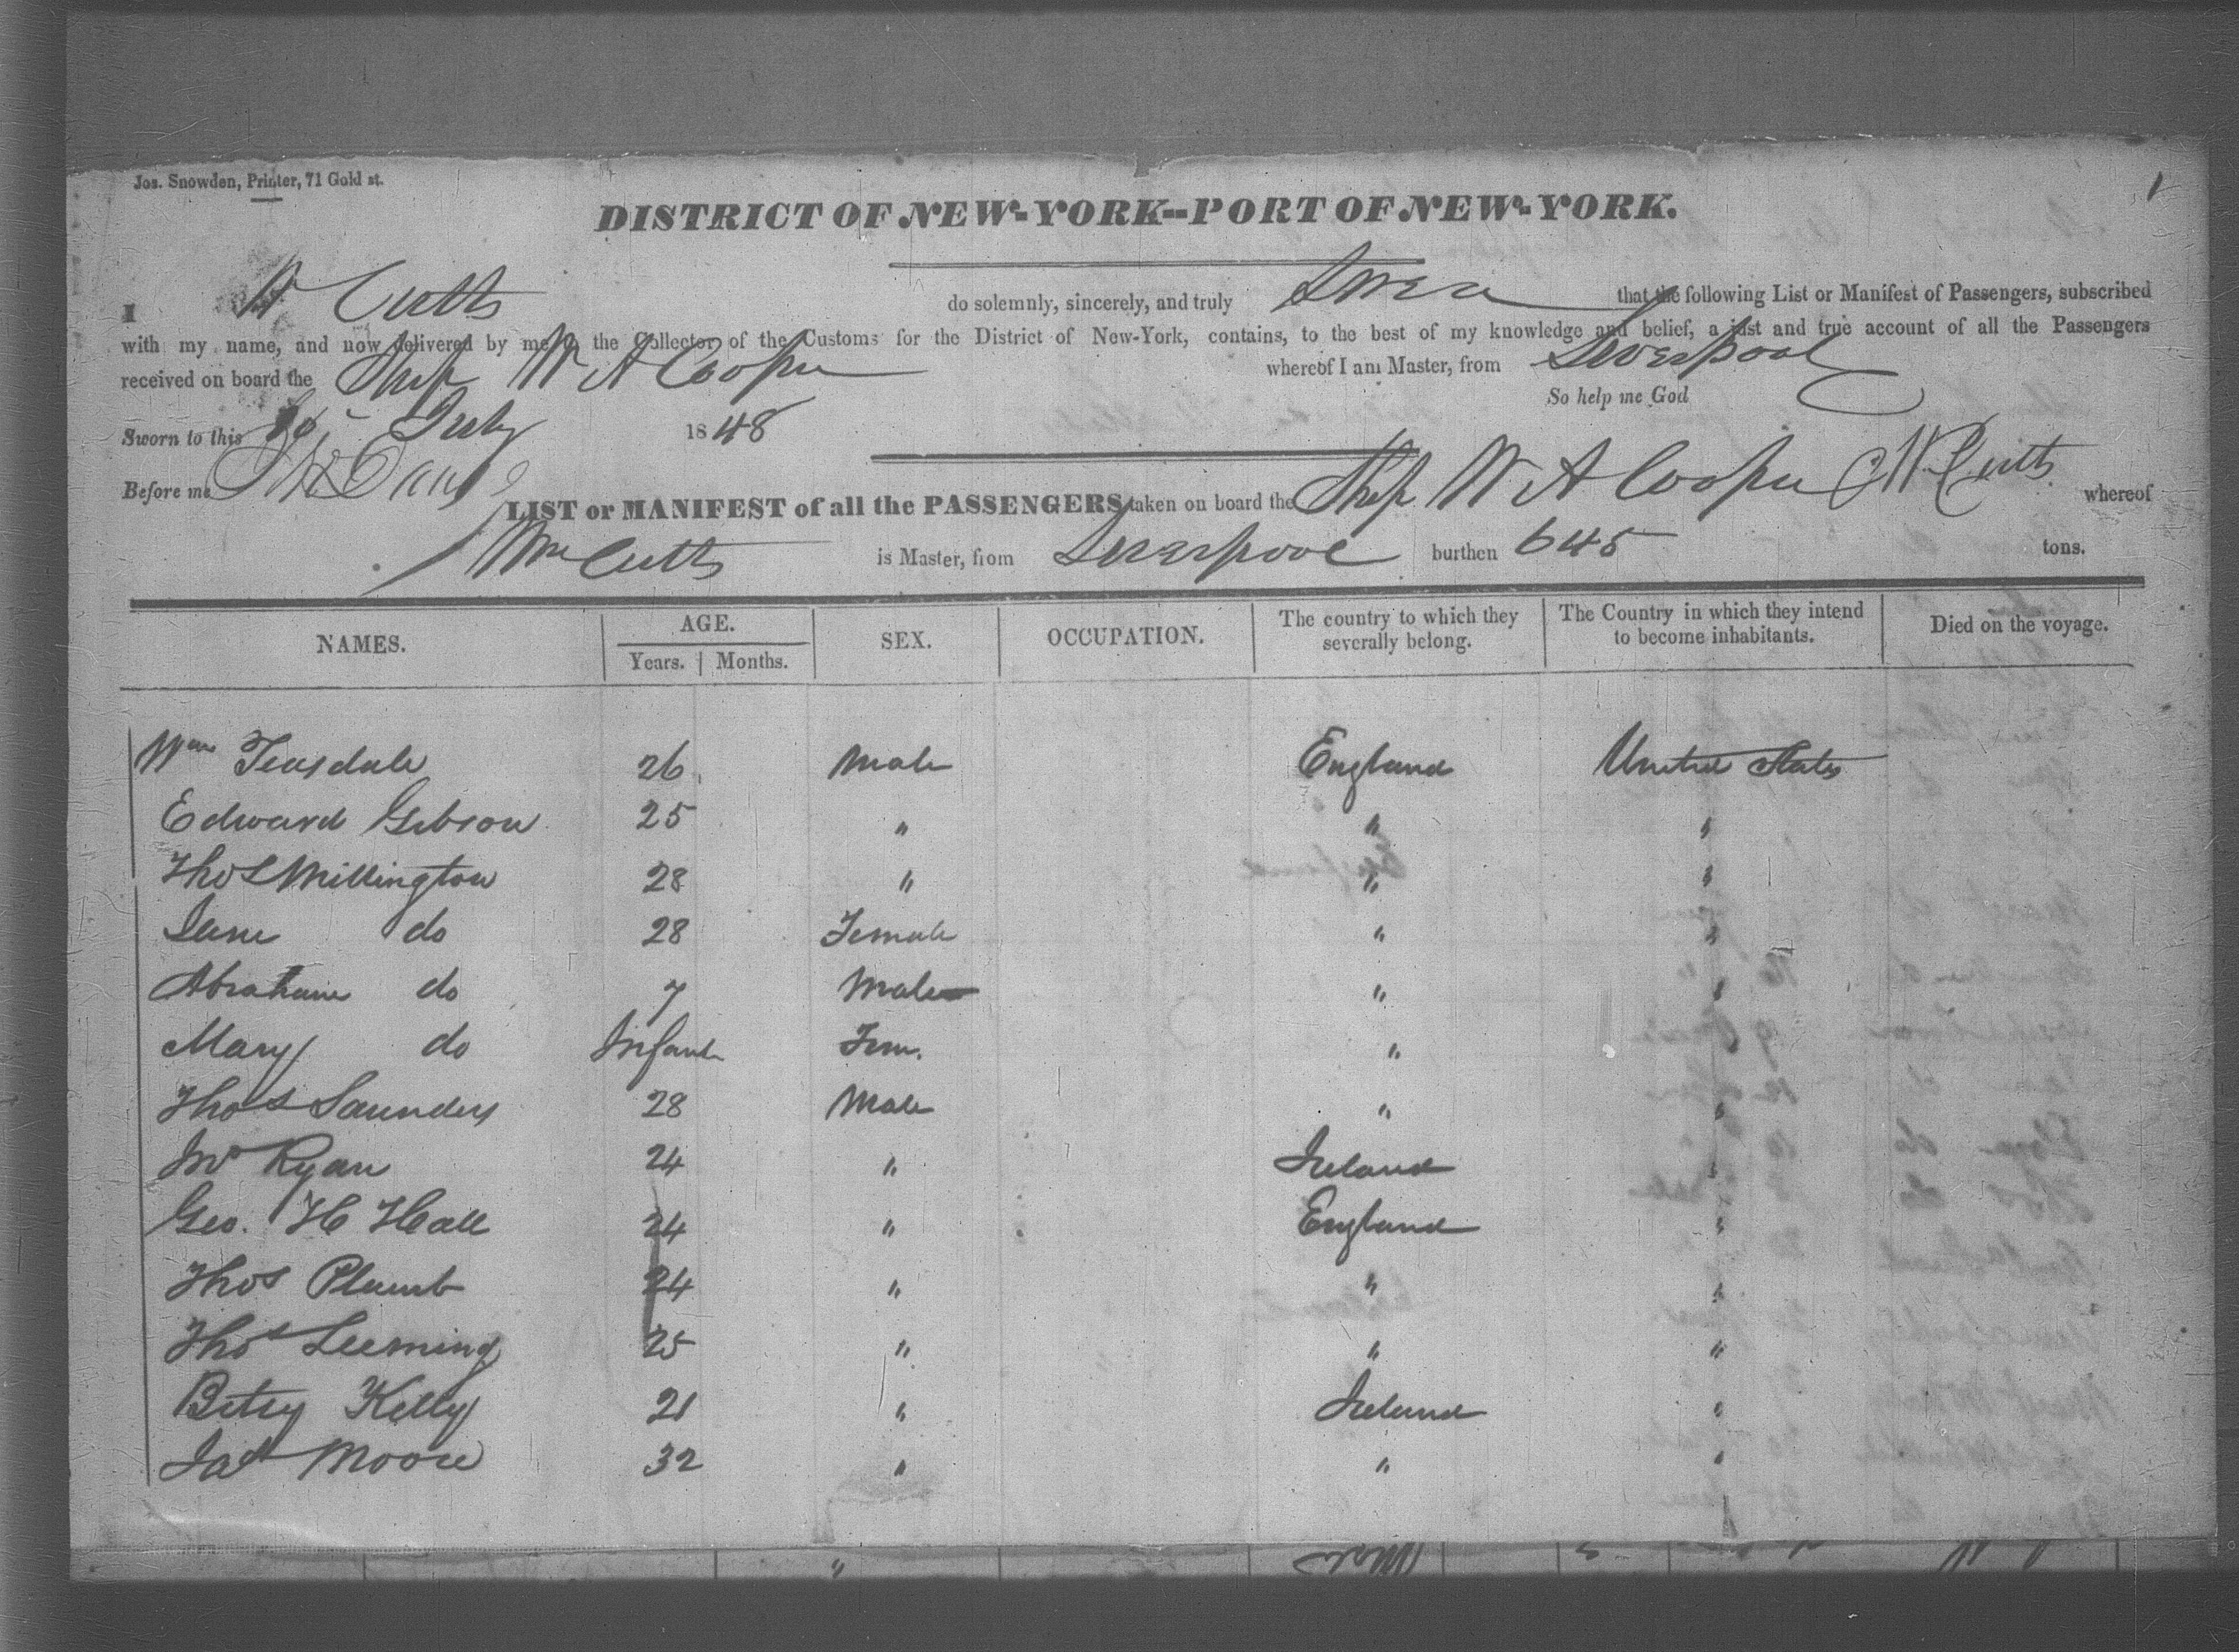 Jos. Snowden, Printer, 71 Gold st.
1
DISTRICT OF NEW-YORK--PORT OF NEW-YORK.
I W Cutts do solemnly, sincerely, and truly Swear that the following List or Manifest of Passengers, subscribed
with my name, and now delivered by me to the Collector of the Customs for the District of New-York, contains, to the best of my knowledge and belief, a just and true account of all the Passengers
received on board the Ship W A Cooper whereof I am Master, from Liverpool
So help me God
Sworn to this July 1848
Before me
LIST or MANIFEST of all the PASSENGERS taken on board the Ship W A Cooper W Cutts whereof
Wm Cutts is Master, from Liverpool burthen 645 tons.
NAMES. AGE. SEX. OCCUPATION. The country to which they severally belong. The Country in which they intend to become inhabitants. Died on the voyage.
Years. Months.
Wm Teasdale 26 Male England United States
Edward Gibson 25 " " "
Thos Millington 28 " " "
Jane do 28 Female " "
Abraham do 7 Male " "
Mary do Infant Fem. "
Thos Saunders 28 Male " "
Jno Ryan 24 " Ireland "
Geo. H Hall 24 " England "
Thos Plumb 24 " " "
Thos Leeming 25 " " "
Betsy Kelly 21 " Ireland "
Jas Moore 32 " " "